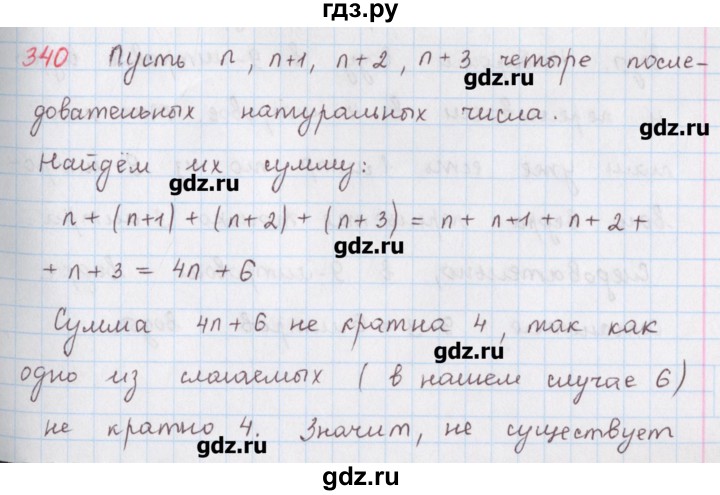 гдз.ру
340 Пусть n, n+1, n+2, n+3 четыре после-
gdz.ru
довательных натуральных числа.
gdz.ru
Найдём их сумму:
gdz.ru
n + (n+1) + (n+2) + (n+3) = n + n+1 + n+2 +
gdz.ru
+ n+3 = 4n+6
Сумма 4n+6 не кратна 4, так как
gdz.ru
одно из слагаемых (в нашем случае 6)
не кратно 4. Значит, не существует
gdz.ru
gdz.ru